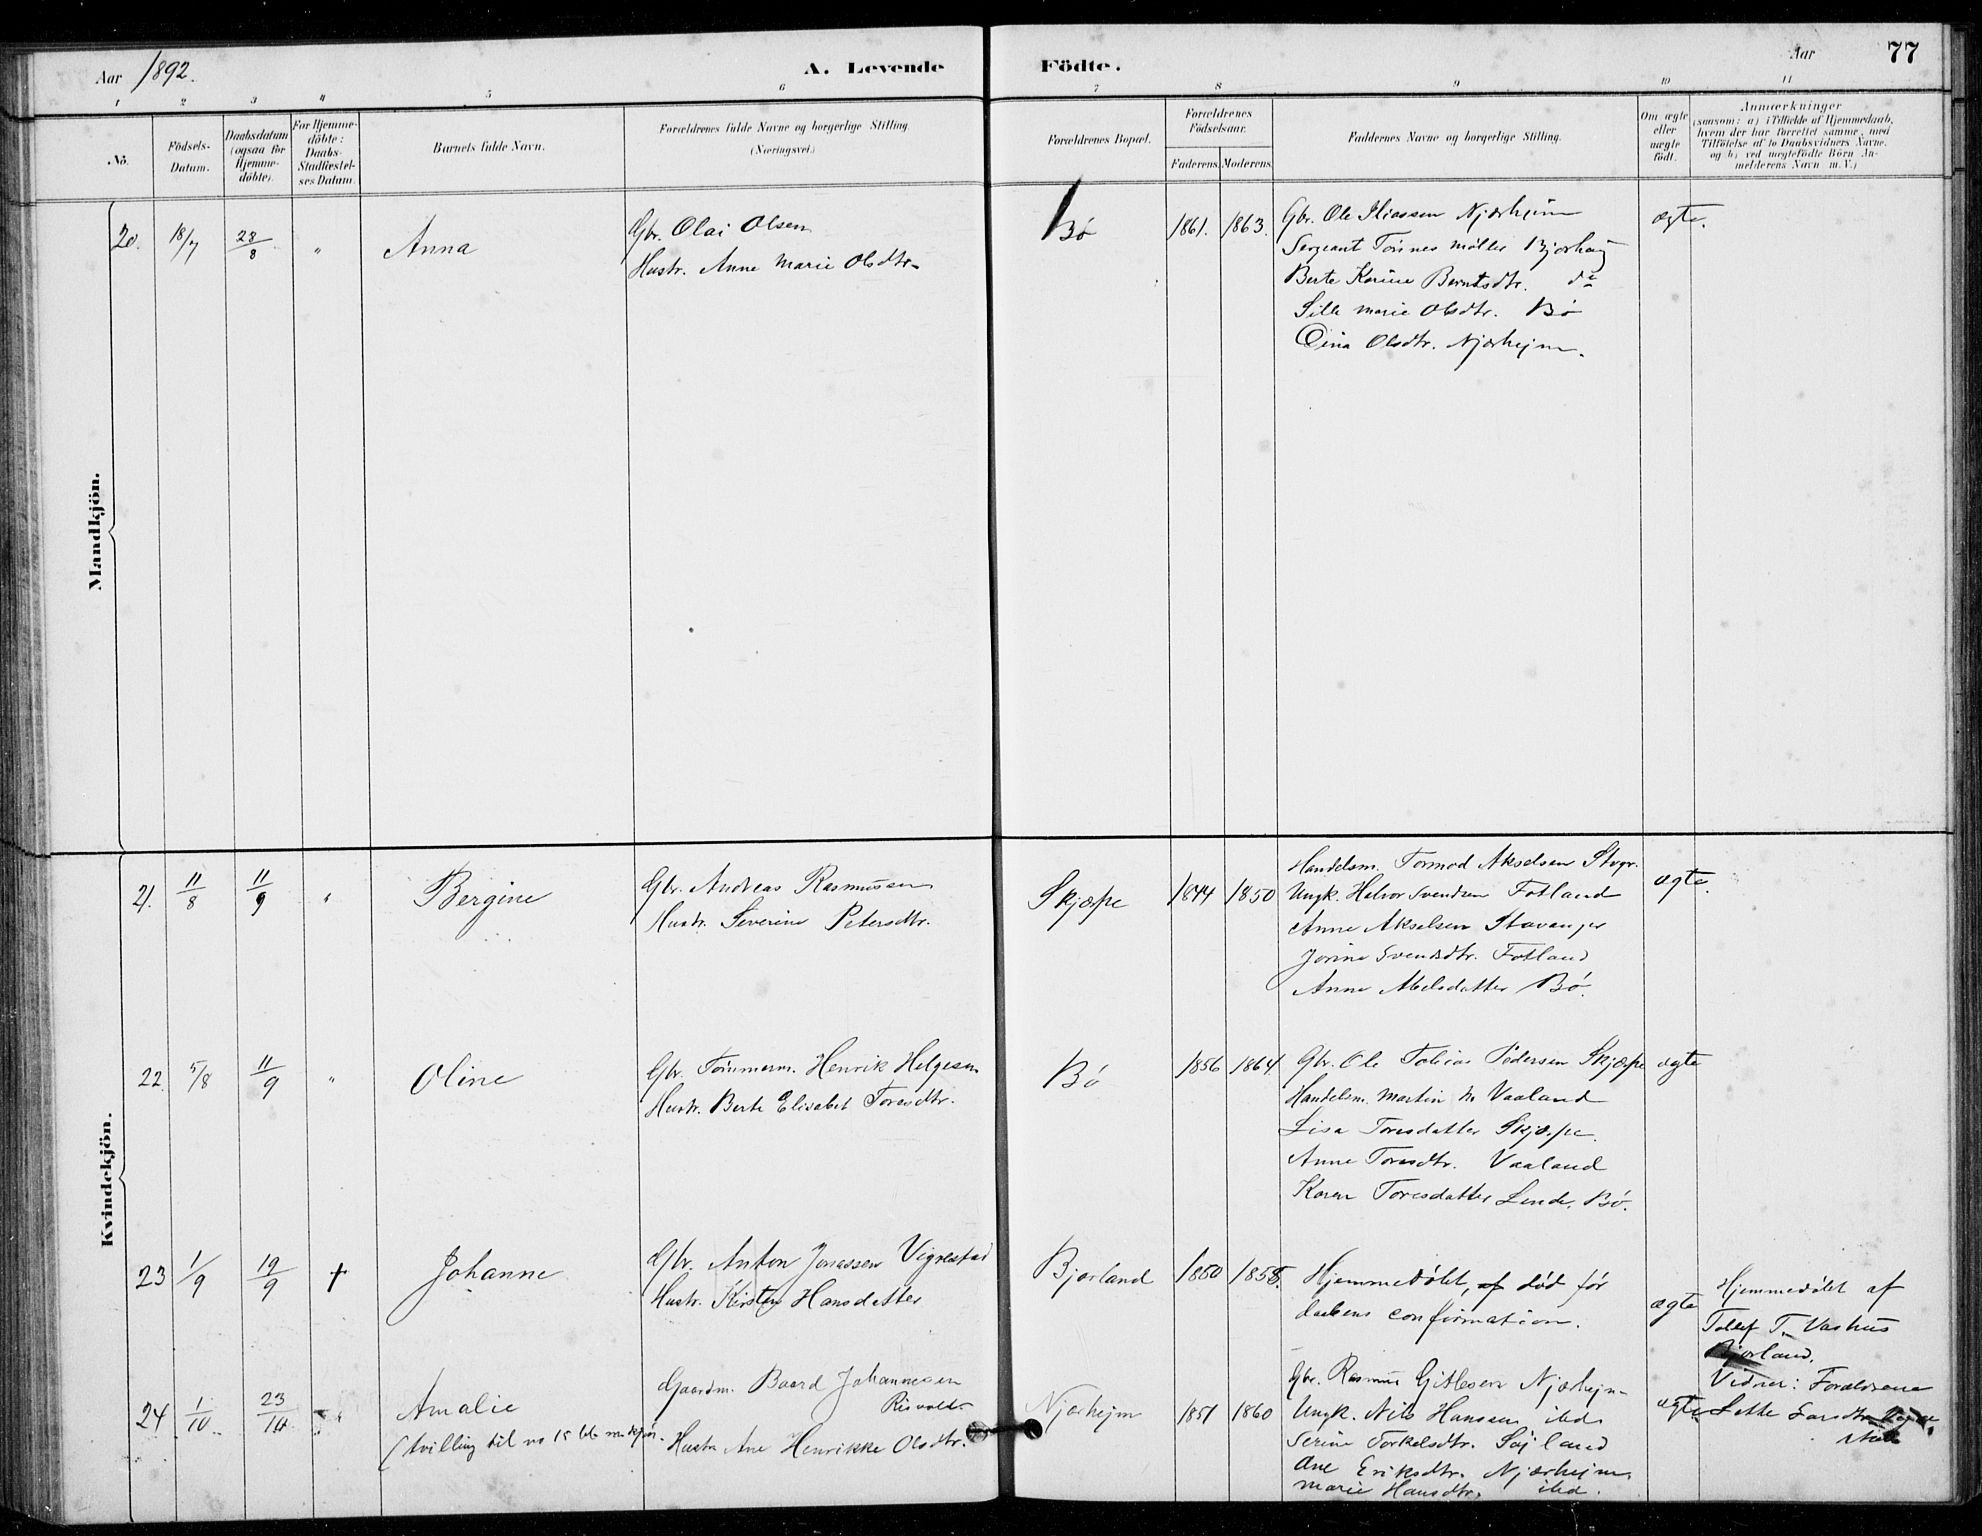 Aar 1892.
A. Levende Födte.
Aar
77
1 2 3 4 5 6 7 8 9 10 11
No.
Födsels-
Datum.
Daabsdatum
(ogsaa for
Hjemme-
döbte).
For Hjemme-
döbte:
Daabs-
Stadfæstel-
ses Datum.
Barnets fulde Navn.
Forældrenes fulde Navne og borgerlige Stilling
(Næringsvei.)
Forældrenes Bopæl.
Forældrenes
Födselsaar.
Faderens. Moderens.
Faddernes Navne og borgerlige Stilling.
Om ægte
eller
uægte
födt.
Anmærkninger
(saasom: a) i Tilfælde af Hjemmedaab,
hvem der har forrettet samme, med
Tilföielse af to Daabsvidners Navne,
og b) ved uægtefödte Börn An-
melderens Navn m. V.)
Mandkjön.
20. 18/7 28/8 " Anna
Gbr. Olai Olsen
Hustr. Anne Marie Olsdtr.
Bø
1861. 1863.
Gbr. Ole Iliassen Njærheim
Sergeant Tønnes Møller Bjorhaug
Berte Karine Berntsdtr. do
Sille Marie Olsdtr. Bø
Dina Olsdtr. Njærhejm.
ægte.
Kvindekjön.
21. 11/8 11/9 " Bergine
Gbr. Andreas Rasmussen
Hustr. Severine Petersdtr.
Skjæpe
1844 1850
Handelsm. Tormod Akselsen Stvgr.
Ungk. Halvor Svendsen Fotland
Anne Akselsen Stavanger
Jorine Svendsdtr. Fotland
Anne Abelsdatter Bø.
ægte.
22. 5/8 11/9 " Oline
Gbr. Tømmerm. Henrik Helgesen
Hustr. Berte Elisabet Toresdtr.
Bø
1856 1864.
Gbr. Ole Tobias Pedersen Skjæpe
Handelsm. Martin M Vaaland
Lisa Toresdatter Skjæpe.
Anne Toresdtr. Vaaland
Karen Toresdatter Lende, Bø.
ægte
23 1/9 19/9 + Johanne
Gbr. Anton Jonassen Vigrestad
Hustr. Kirsten Hansdatter
Bjorland
1850 1858.
Hjemmedøbt, af død før
daabens confirmation.
ægte
Hjemmedøbt af
Tollef T. Vashus
Bjorland.
Vidner: Forældrene
24 1/10. 23/10. " Amalie
(tvilling til no 15 bl. mandkjøn.
Gaardm. Baard Johannesen
Risvold
Hustr Ane Henrikke Olsdtr.
Njærhejm
1851 1860
Gbr. Rasmus Gitlesen Njærhejm
Ungk. Nils Hansen ibd
Serine Torkelsdtr. Søjland
Ane Eriksdtr. Njærhejm
Marie Hansdtr. ibd.
ægte